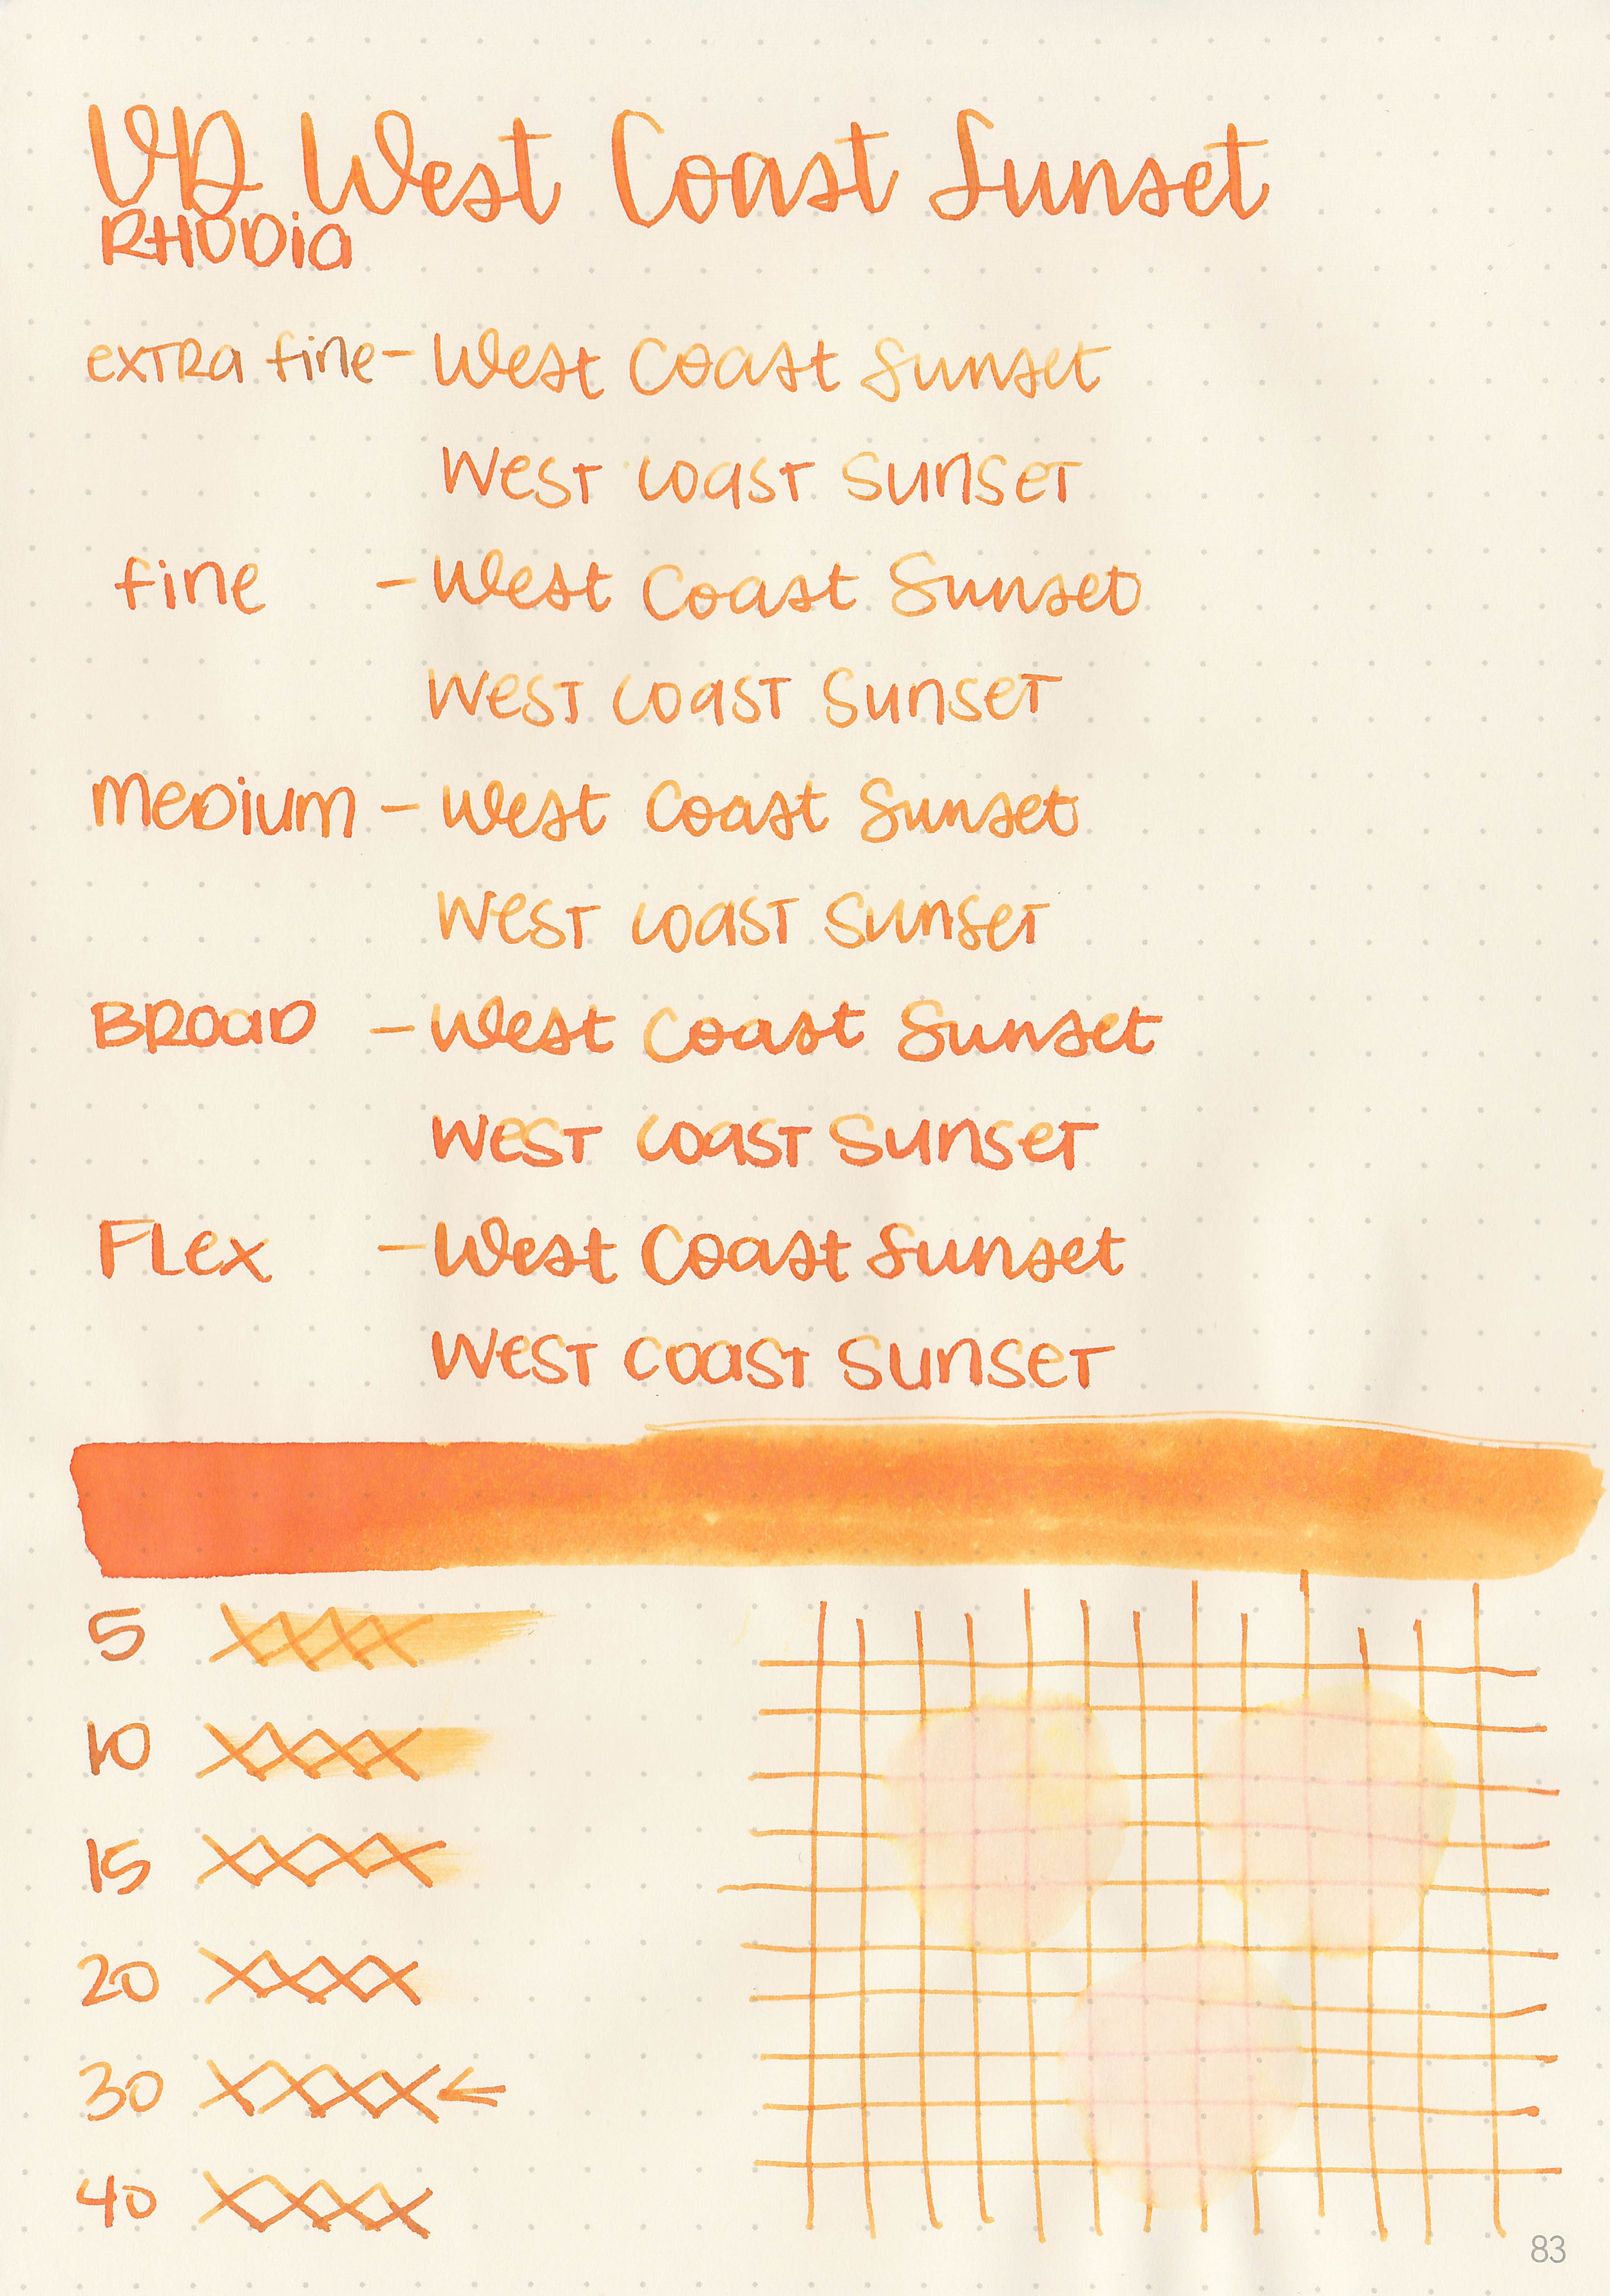 VD West Coast Sunset
RHODia
exTRa fine - West Coast Sunset
West Coast Sunset
fine - West Coast Sunset
West Coast Sunset
MeDium - West Coast Sunset
West Coast Sunset
BRoaD - West Coast Sunset
West Coast Sunset
FLex - West Coast Sunset
West Coast Sunset
5
10
15
20
30 ←
40
83